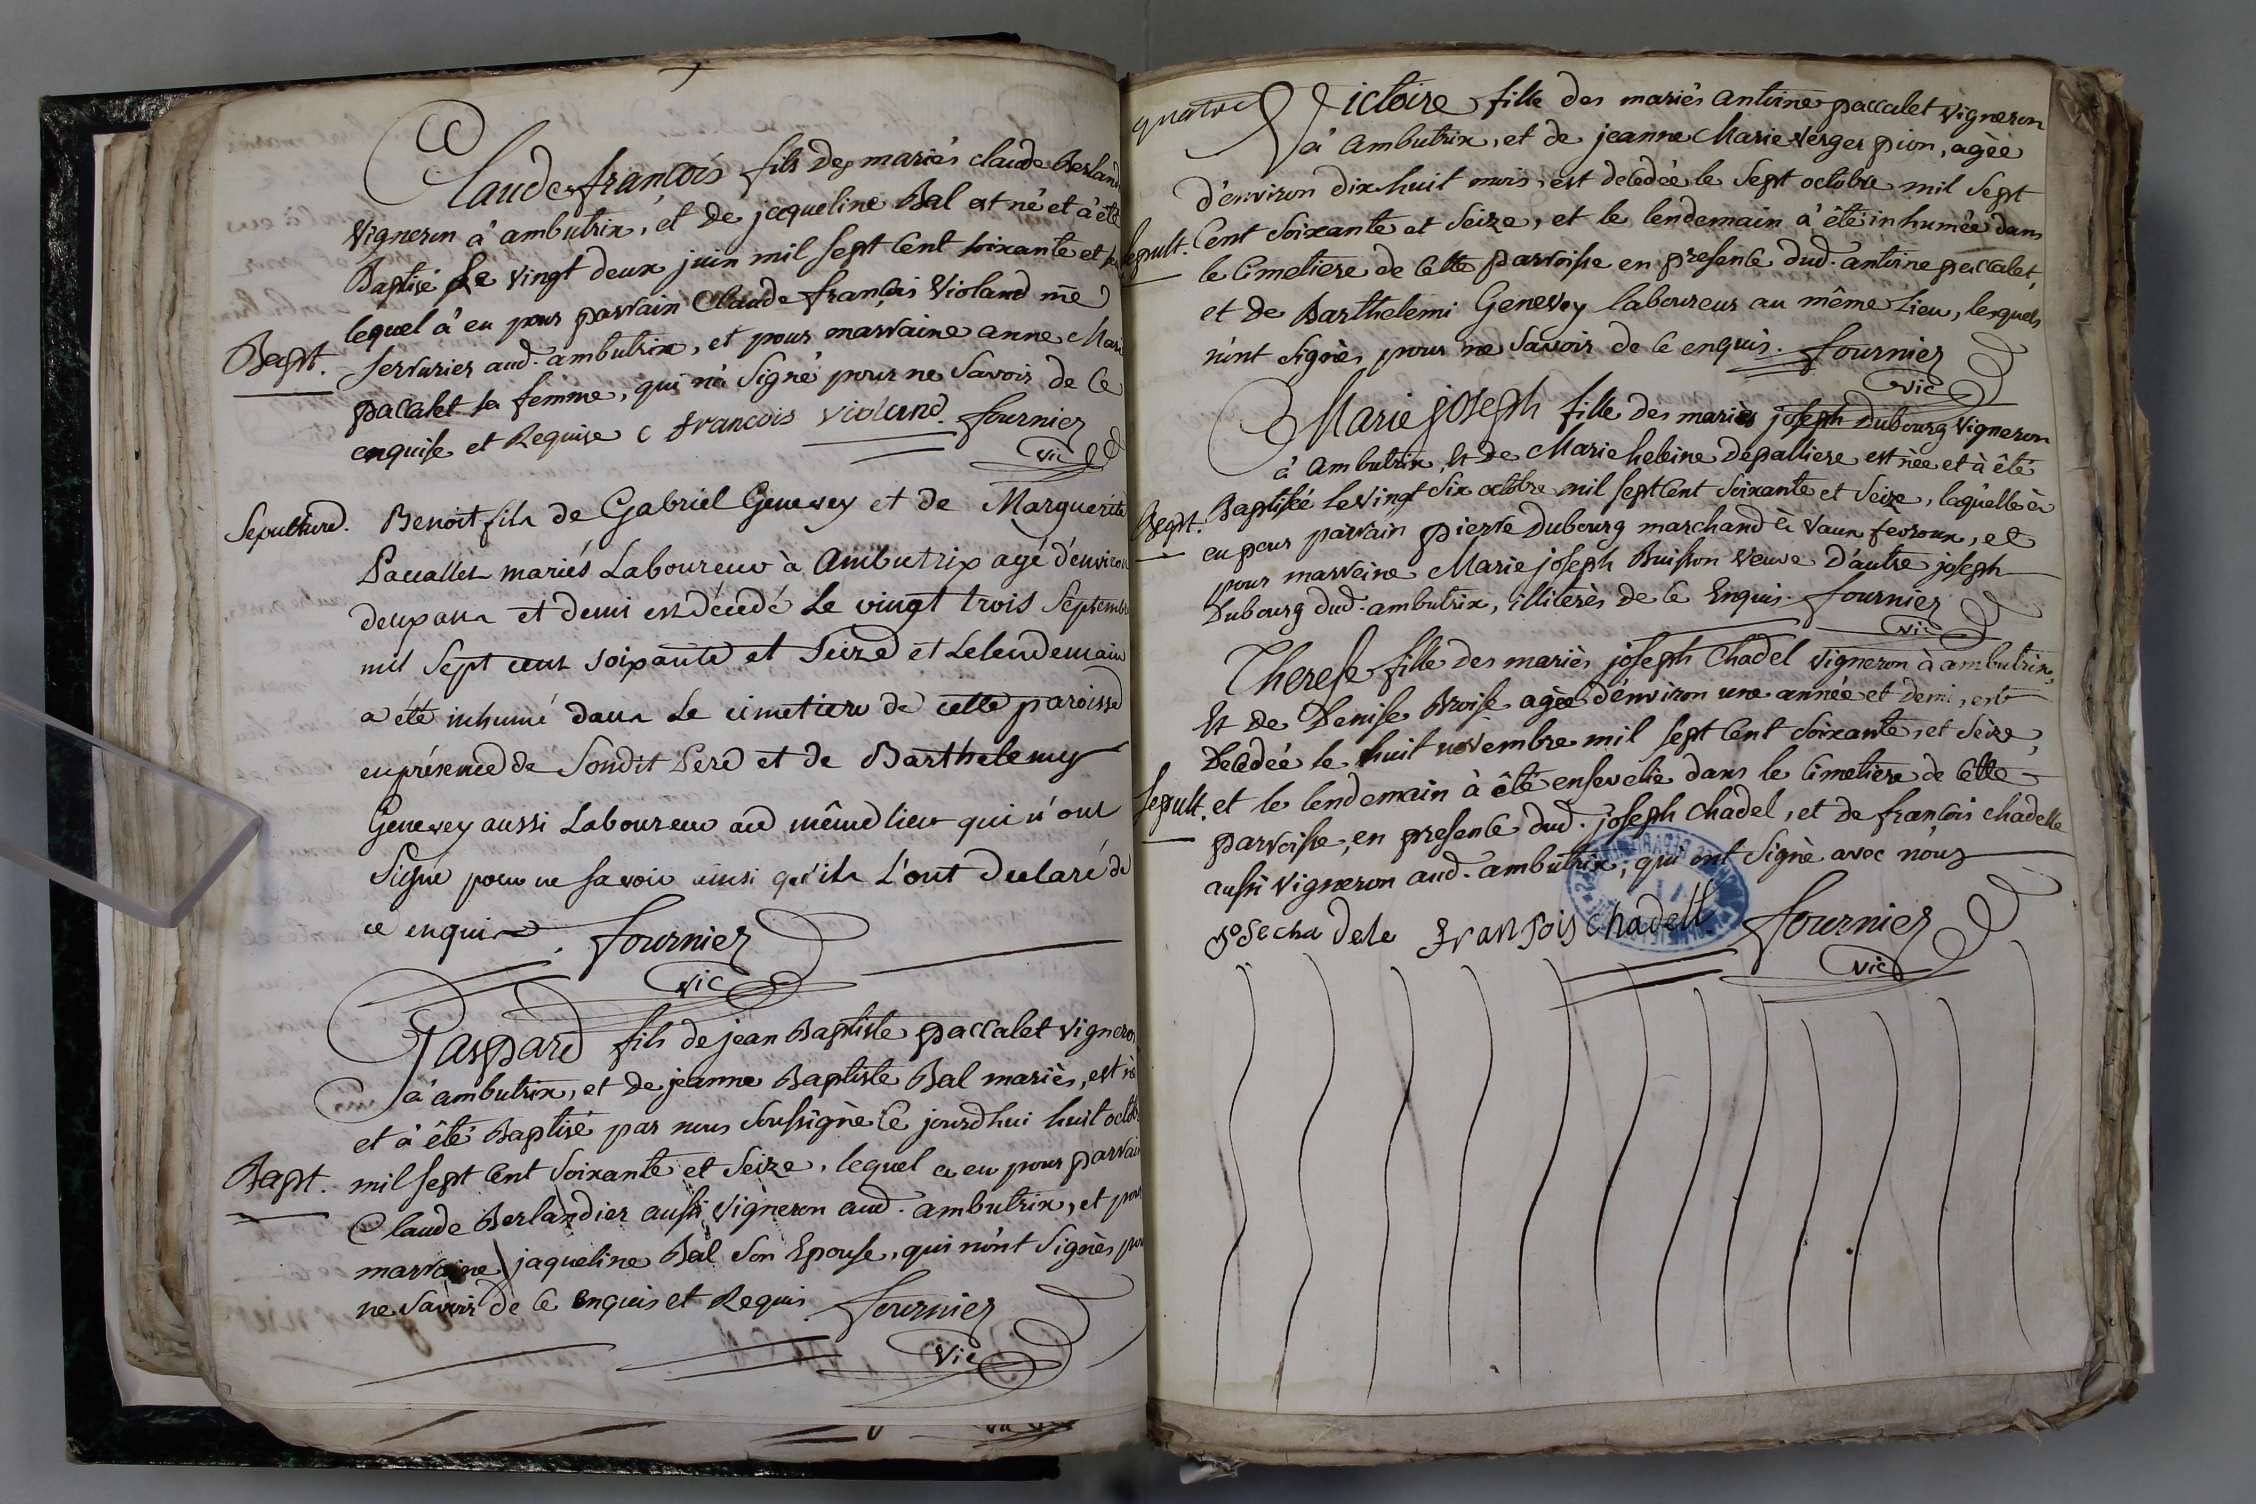 Claude françois fils des mariés claude Berland
vigneron à ambutrix, et de jacqueline Bal est né et à été
Baptisé Le vingt deux juin mil sept Cent soixante et
lequel à eu pour parrain Claude françois Violand me
Bapt. serrurier aud. ambutrix, et pour marraine anne Mari
paccalet sa femme, qui n'a Signé pour ne Savoir de Ce
enquise et Requise C francois violand. fournier
vic
Sepulture. Benoit fils de Gabriel Genevey et de Marguerite
Paccallet mariés Laboureur à Ambutrix agé d'environ
deux ans et demi est décédé Le vingt trois Septembre
mil Sept cent soixante et Seize et Lelendemain
a été inhumé dans Le cimetiere de cette paroisse
en présence de Sondit Pere et de Barthelemy
Genevey aussi Laboureur au même lieu qui n'ont
Signé pour ne savoir ainsi qu'ils L'ont declaré de
ce enquis. fournier
vic
Gaspard fils de jean Baptiste paccalet vigneron
à ambutrix, et de jeanne Baptiste Bal mariés, est né
et à été Baptisé par nous Soussigné Ce jourdhui huit octob
Bapt. mil sept Cent Soixante et Seize, lequel a eu pour parrain
Claude Berlandier aussi vigneron aud. ambutrix, et pour
marraine jaqueline Bal Son Epouse, qui n'ont Signés pour
ne Savoir de Ce enquis et Requis fournier
vic
quatre
Victoire fille des mariés antoine paccalet vigneron
à Ambutrix, et de jeanne Marie verger pion, agée
d'environ dix huit mois, est decedée le Sept octobre mil Sept
Sepult. Cent Soixante et Seize, et le lendemain à été inhumée dans
le Cimetiere de Cette parroisse en presence dud. antoine paccalet,
et de Barthelemi Genevey laboureur au même Lieu, lesquels
n'ont Signés pour ne Savoir de Ce enquis. fournier
vic
Marie joseph fille des mariés joseph Dubourg vigneron
à Ambutrix, Et de Marie heleine depalliere est née et à été
Bapt. Baptisée le vingt Six octobre mil sept Cent Soixante et Seize, laquelle à
eu pour parrain pierre Dubourg marchand à vaux fevroux, et
pour marreine Marie joseph Buisson veuve D'autre joseph
Dubourg dud. ambutrix, illiterés de Ce Enquis. fournier
vic
Therese fille des mariés joseph Chadel vigneron à ambutrix,
Et de Denise Broise agée d'environ une année et demi, est
Decedée le huit novembre mil sept Cent Soixante, et Seize,
Sepult. et le lendemain à été ensevelie dans le Cimetiere de Cette
parroisse, en presence dud. joseph chadel, et de francois chadelle
aussi vigneron aud. ambutrix, qui ont Signé avec nous
Josecha dele franSois chadell fournier
vic